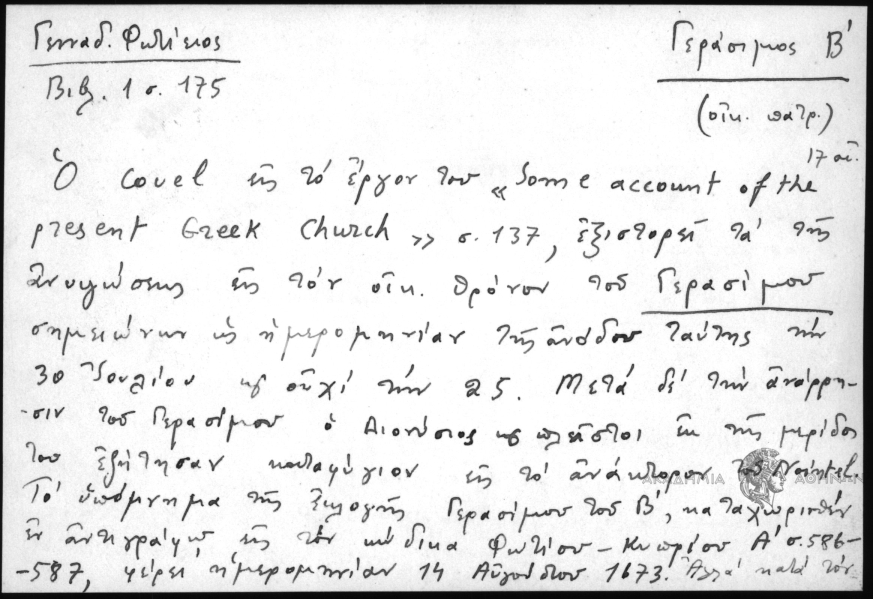 Γενναδ. Φωτίειος
Βιβλ. 1 σ. 175
Γεράσιμος Β'
(οἰκ. πατρ.)
17 αἰ.
Ὁ Covel εἰς τό ἔργον του «Some account of the
present Greek Church» σ. 137, ἐξιστορεῖ τά τῆς
ἀνυψώσεως εἰς τόν οἰκ. θρόνον τοῦ Γερασίμου
σημειώνων ὡς ἡμερομηνίαν τῆς ἀνόδου ταύτης τήν
30 Ἰουλίου καί οὐχί τήν 25. Μετά δέ τήν ἀνάρρη-
-σιν τοῦ Γερασίμου ὁ Διονύσιος καί πλεῖστοι ἐκ τῆς μερίδος
του ἐζήτησαν καταφύγιον εἰς τό ἀνάκτορον τοῦ Nointel.
Τό ὑπόμνημα τῆς ἐκλογῆς Γερασίμου τοῦ Β', καταχωρισθέν
ἐν ἀντιγράφῳ εἰς τόν κώδικα Φωτίου - Κυπρίου Α' σ. 586-
-587, φέρει ἡμερομηνίαν 14 Αὐγούστου 1673. Ἀλλά κατά τόν
ΑΚΑΔΗΜΙΑ ΑΘΗΝΩΝ